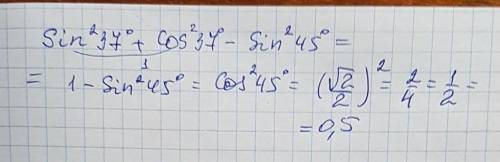 Sin²37° + Cos²37° - Sin²45° =
1
= 1 - Sin²45° = Cos²45° = (√2/2)² = 2/4 = 1/2 =
= 0,5